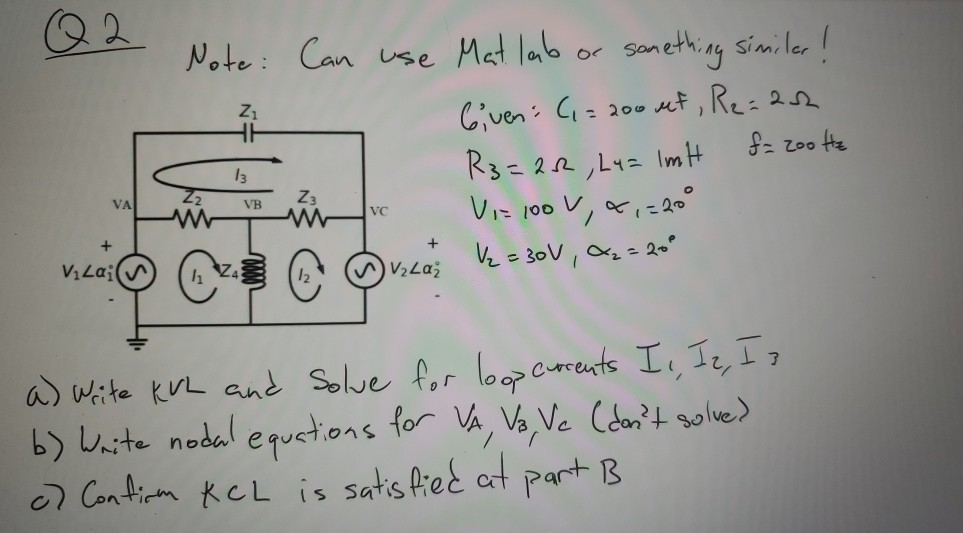 Q2
Note: Can use Matlab or something similar!
Given: C1 = 200 uf, R2 = 2Ω
R3 = 2Ω, L4 = 1mH f = 200 Hz
V1 = 100 V, α1 = 20°
V2 = 30V, α2 = 20°
Z1
I3
Z2
Z3
VA
VB
VC
+
+
V1∠α1°
I1
Z4
I2
V2∠α2°
-
-
a) Write KVL and Solve for loop currents I1, I2, I3
b) Write nodal equations for VA, VB, Vc (don't solve)
c) Confirm KCL is satisfied at part B